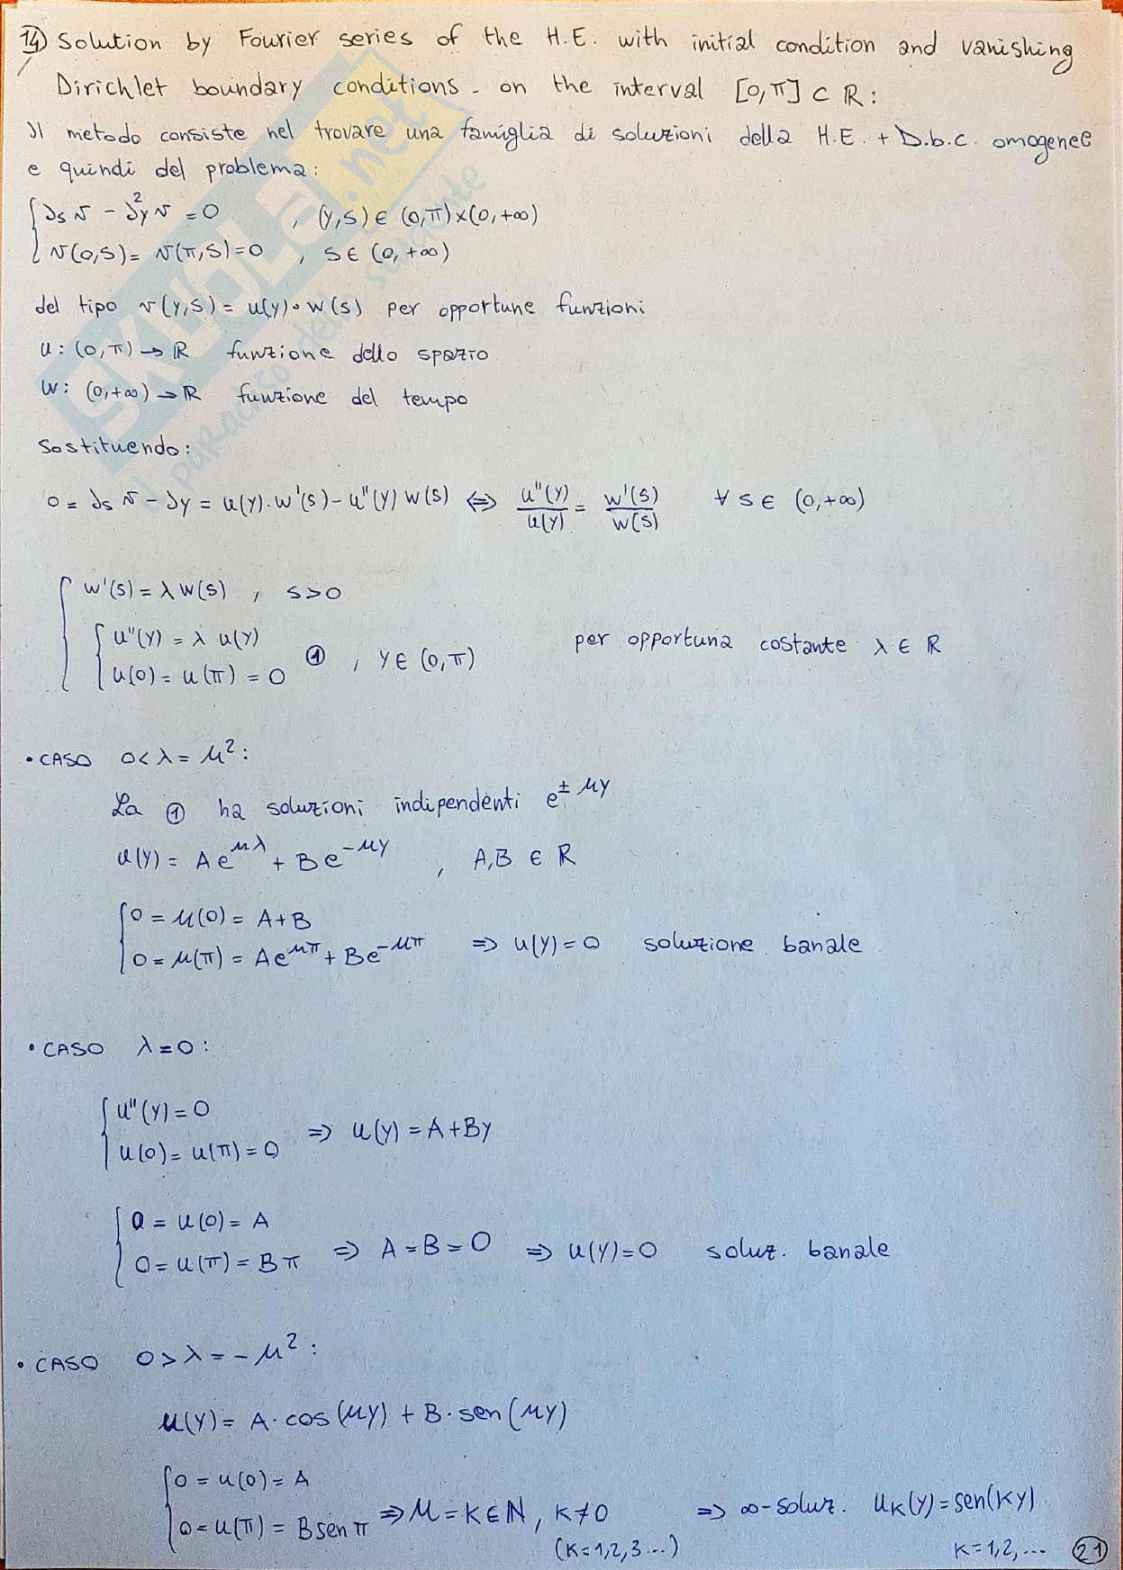 14) Solution by Fourier series of the H.E. with initial condition and vanishing
Dirichlet boundary conditions - on the interval [0,π] ⊂ ℝ:
Il metodo consiste nel trovare una famiglia di soluzioni della H.E. + D.b.c. omogenee
e quindi del problema:
{ ∂s v - ∂²y v = 0 , (y,s) ∈ (0,π)×(0,+∞)
{ v(0,s) = v(π,s) = 0 , s ∈ (0,+∞)
del tipo v(y,s) = u(y)·w(s) per opportune funzioni
u: (0,π) → ℝ funzione dello spazio
w: (0,+∞) → ℝ funzione del tempo
Sostituendo:
0 = ∂s v - ∂y = u(y)·w'(s) - u''(y) w(s) ⇔ u''(y)/u(y) = w'(s)/w(s) ∀ s ∈ (0,+∞)
{ w'(s) = λ w(s) , s>0
{ u''(y) = λ u(y)
{ u(0) = u(π) = 0 ① , y ∈ (0,π) per opportuna costante λ ∈ ℝ
• CASO 0 < λ = μ²:
La ① ha soluzioni indipendenti e^{± μy}
u(y) = A e^{μλ} + B e^{-μy} , A,B ∈ ℝ
{ 0 = μ(0) = A+B
{ 0 = μ(π) = A e^{μπ} + B e^{-μπ} ⇒ u(y) = 0 soluzione banale
• CASO λ = 0:
{ u''(y) = 0
{ u(0) = u(π) = 0 ⇒ u(y) = A + By
{ 0 = u(0) = A
{ 0 = u(π) = Bπ ⇒ A = B = 0 ⇒ u(y) = 0 soluz. banale
• CASO 0 > λ = -μ²:
u(y) = A·cos(μy) + B·sen(μy)
{ 0 = u(0) = A
{ 0 = u(π) = B sen π ⇒ μ = K ∈ ℕ, K ≠ 0 ⇒ ∞-soluz. u_K(y) = sen(Ky)
(K = 1,2,3...) K = 1,2,...
21
SKUOLA.net
paradiso dello studente